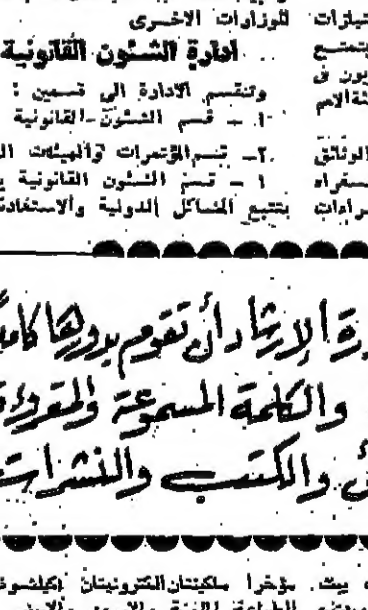 تيازات
يتمتع
يون فى
ئة الامم
الوثائق
ستقراء
راءات
للوزارات الاخرى
ادارة الشئون القانونية
وتنقسم الادارة الى قسمين :
١ - قسم الشئون القانونية
٢ - قسم المؤتمرات والهيئات
١ - قسم الشئون القانونية
بتتبع المشاكل الدولية والاستفادة
رة الإرشاد أن تقوم بدورها كاملا
والكلمة المسموعة والمقروءة
والكتب والنشرات
مؤخرا ماكينتان الكترونيتان